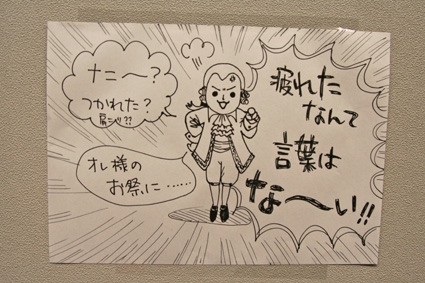 ナニ〜?
つかれた?
オレ様の
お祭に……
疲れた
なんて
言葉は
な〜い!!